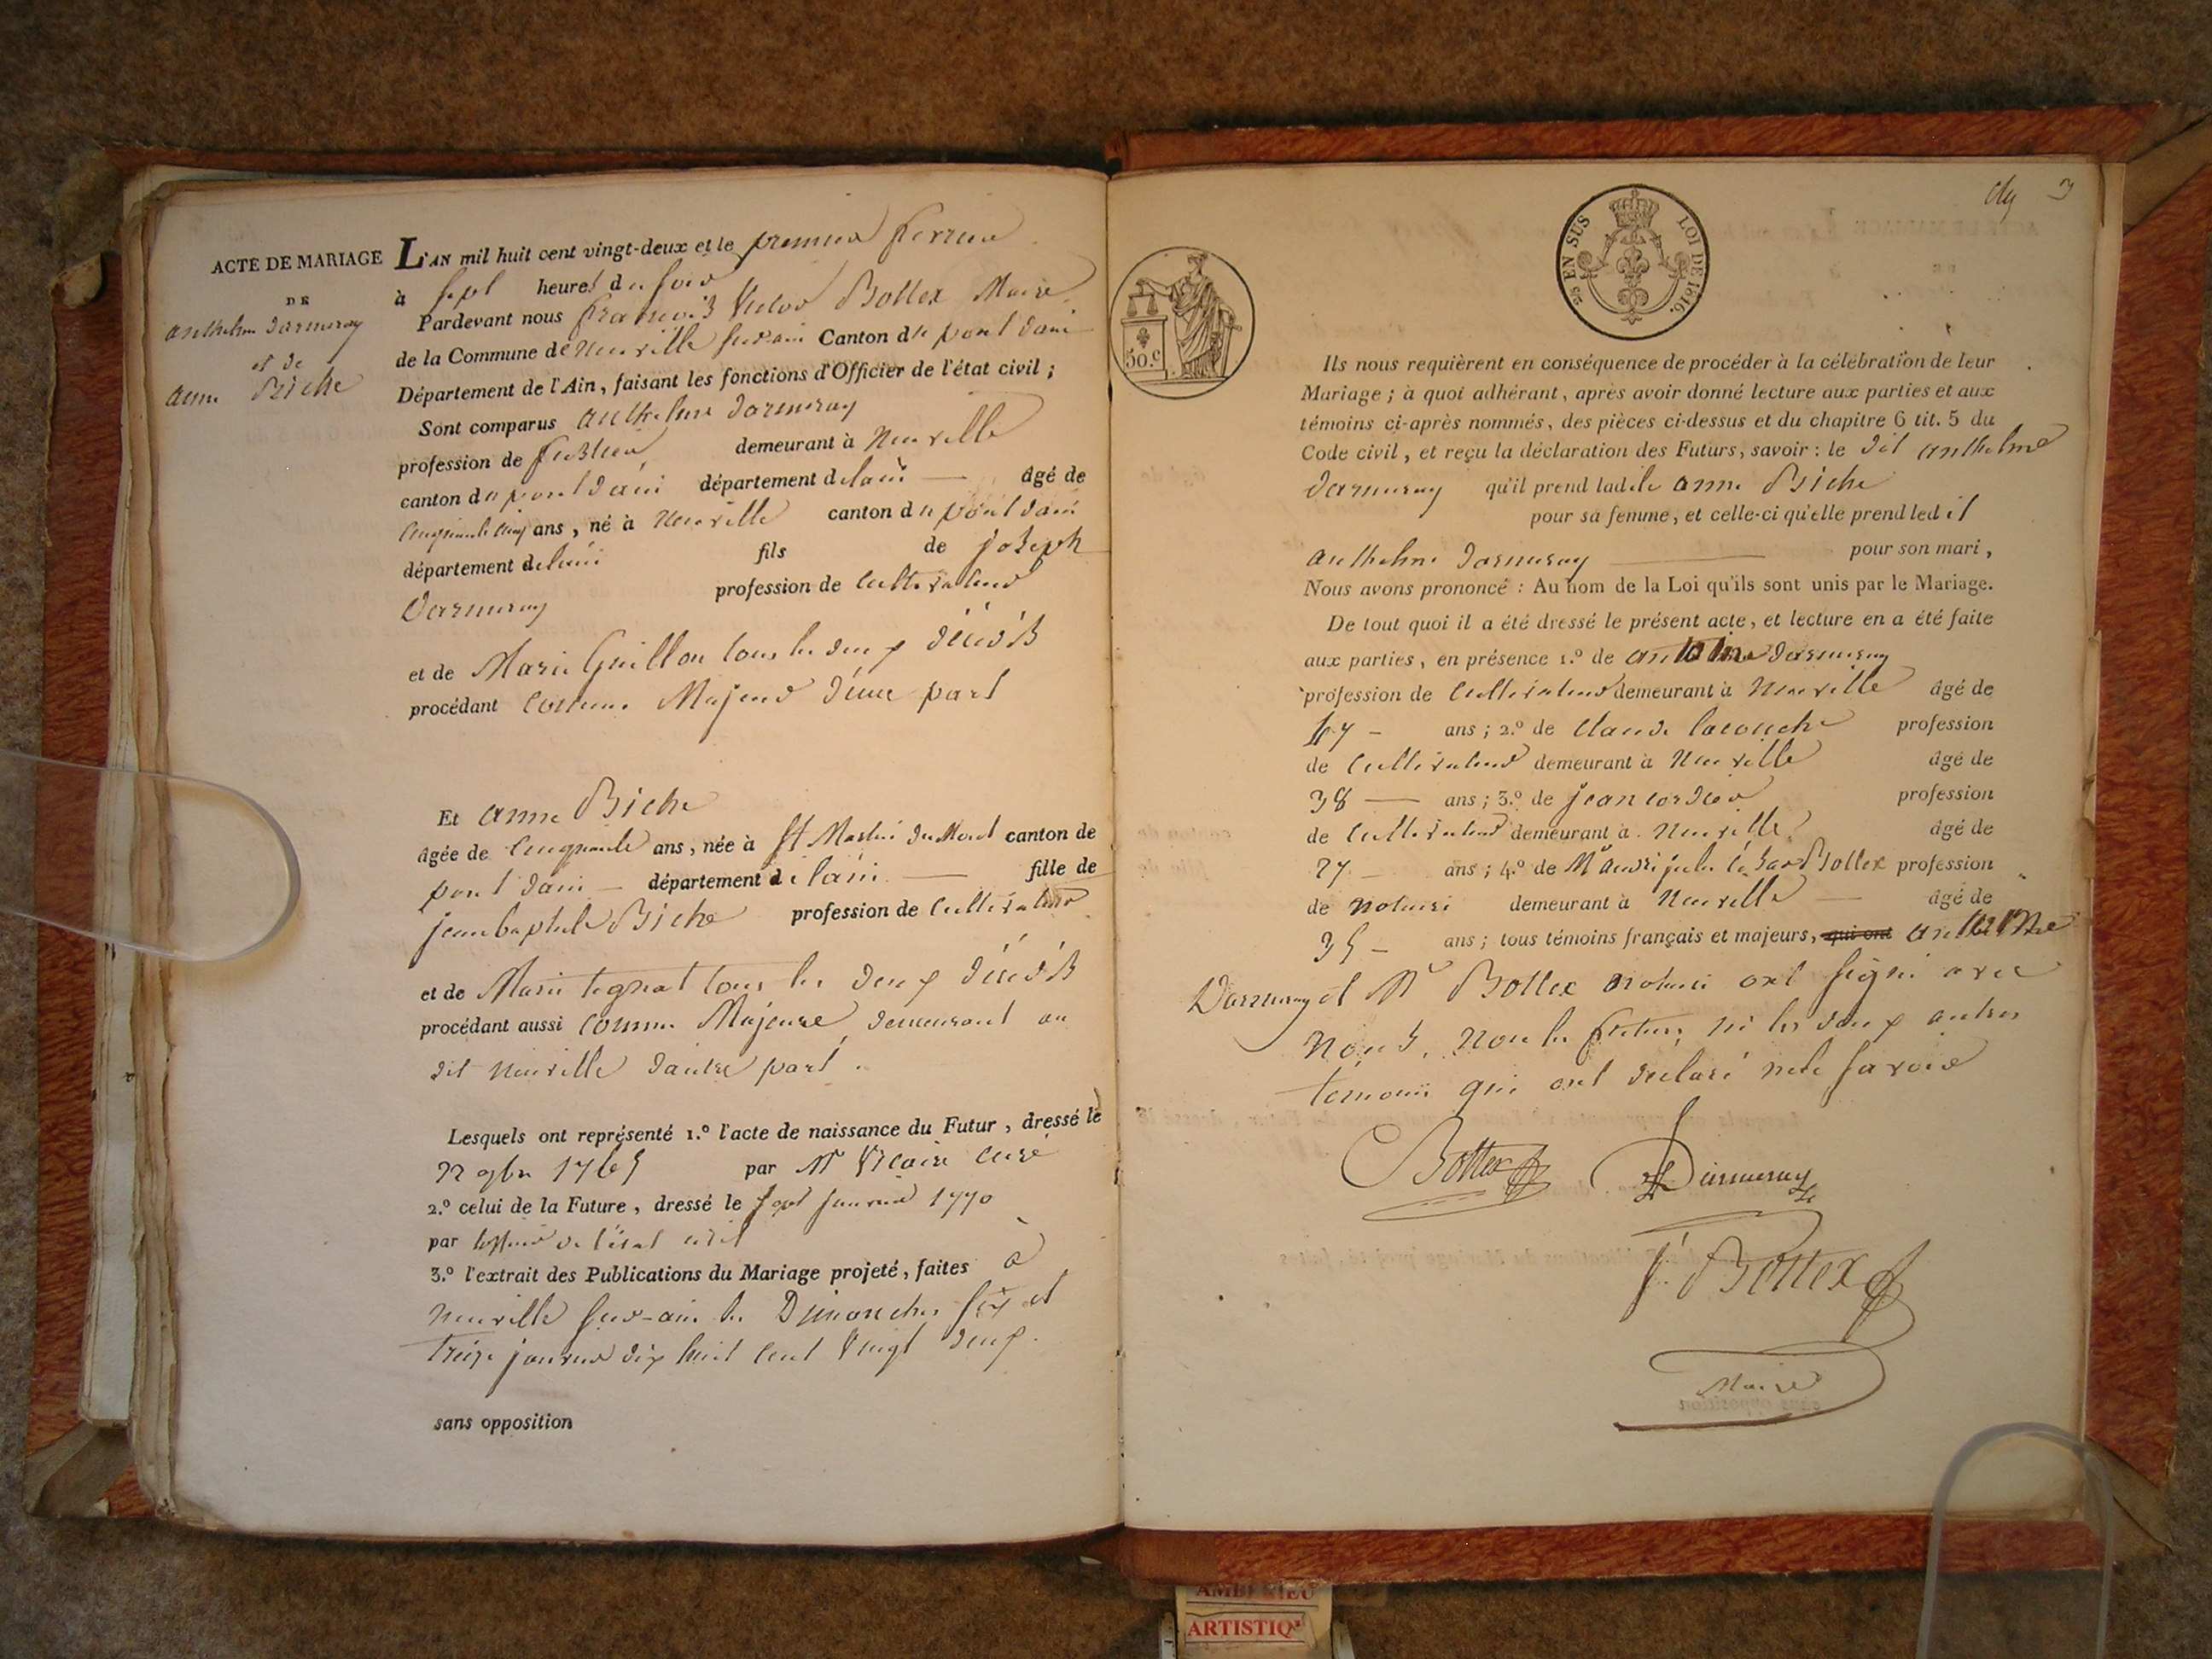 ACTE DE MARIAGE
DE
anthelme darmeray
et de
anne Biche
L'AN mil huit cent vingt-deux et le premier fevrier
à sept heures du soir
Pardevant nous françois Victor Bottex Maire
de la Commune de neuville sur ain Canton du pont dain
Département de l'Ain, faisant les fonctions d'Officier de l'état civil ;
Sont comparus anthelme darmeray
profession de demeurant à Neuville
canton du pont dain département de lain — âgé de
cinquante cinq ans, né à Neuville canton du pont dain
département de lain fils de joseph
Darmeray profession de cultivateur
et de Marie Guillon tous les deux décédés
procédant comme Majeur d'une part
Et anne Biche
âgée de cinquante ans, née à St Martin du Mont canton de
pont dain — département de lain — fille de
jean baptiste Biche profession de cultivateur
et de Marie tignat tous les deux décédés
procédant aussi comme Majeure demeurant au
dit Neuville dautre part.
Lesquels ont représenté 1.º l'acte de naissance du Futur, dressé le
22 9bre 1765 par Mr curé
2.º celui de la Future, dressé le sept janvier 1770
par lofficier de l'état civil
3.º l'extrait des Publications du Mariage projeté, faites à
neuville sur-ain les Dimanches six et
treize janvier dix huit cent vingt deux.
sans opposition
3
50.c
25 EN SUS LOI DE 1816.
Ils nous requièrent en conséquence de procéder à la célébration de leur
Mariage ; à quoi adhérant, après avoir donné lecture aux parties et aux
témoins ci-après nommés, des pièces ci-dessus et du chapitre 6 tit. 5 du
Code civil, et reçu la déclaration des Futurs, savoir : le dit anthelme
darmeray qu'il prend ladite anne Biche
pour sa femme, et celle-ci qu'elle prend ledit
anthelme darmeray — pour son mari,
Nous avons prononcé : Au nom de la Loi qu'ils sont unis par le Mariage.
De tout quoi il a été dressé le présent acte, et lecture en a été faite
aux parties, en présence 1.º de antoine darmeray
profession de cultivateur demeurant à Neuville âgé de
47 — ans ; 2.º de claude lacouche profession
de cultivateur demeurant à Neuville âgé de
38 — ans ; 3.º de jean cordier profession
de cultivateur demeurant à Neuville âgé de
27 — ans ; 4.º de Mr andré jules césar Bottex profession
de notaire demeurant à Neuville — âgé de
35 — ans ; tous témoins français et majeurs, qui ont antoine
Darmeray et Mr Bottex notaire ont signé avec
nous, non les futurs, ni les deux autres
témoins qui ont déclaré ne le savoir
Bottex Darmeray
f. Bottex
Maire
AMBERIEU
ARTISTIQ